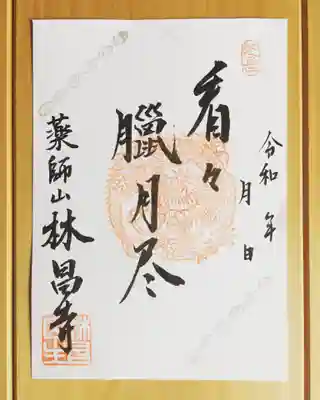 令和 年
月 日
看々
臘月尽
薬師山林昌寺